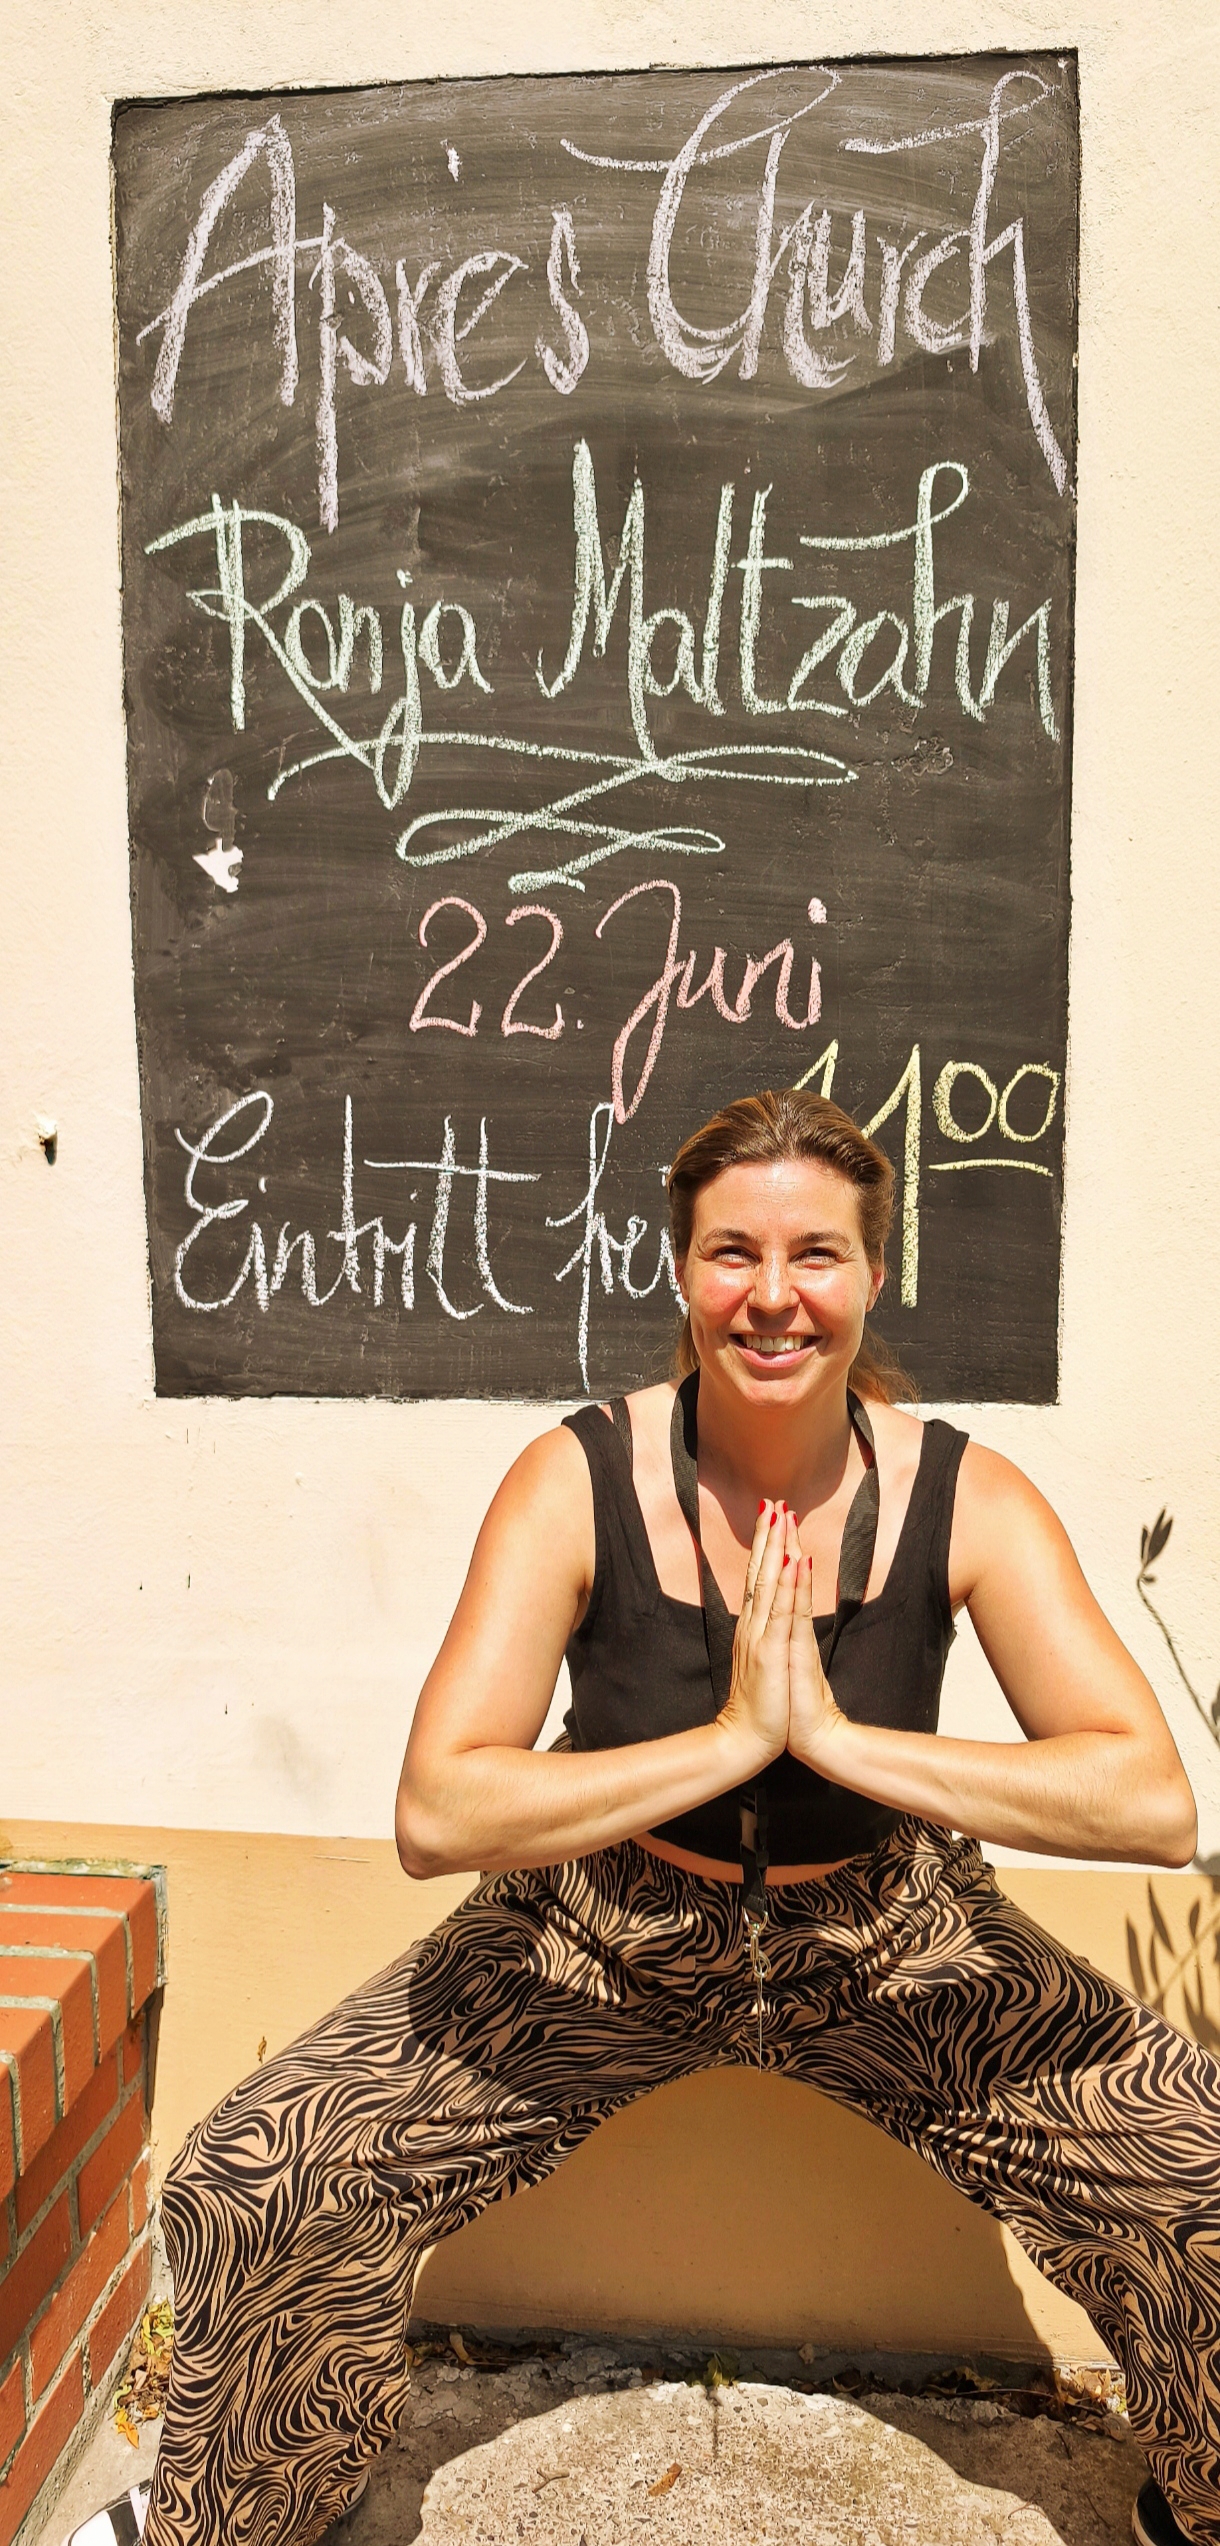 Après Church
Ronja Maltzahn
22. Juni
11 00
Eintritt frei